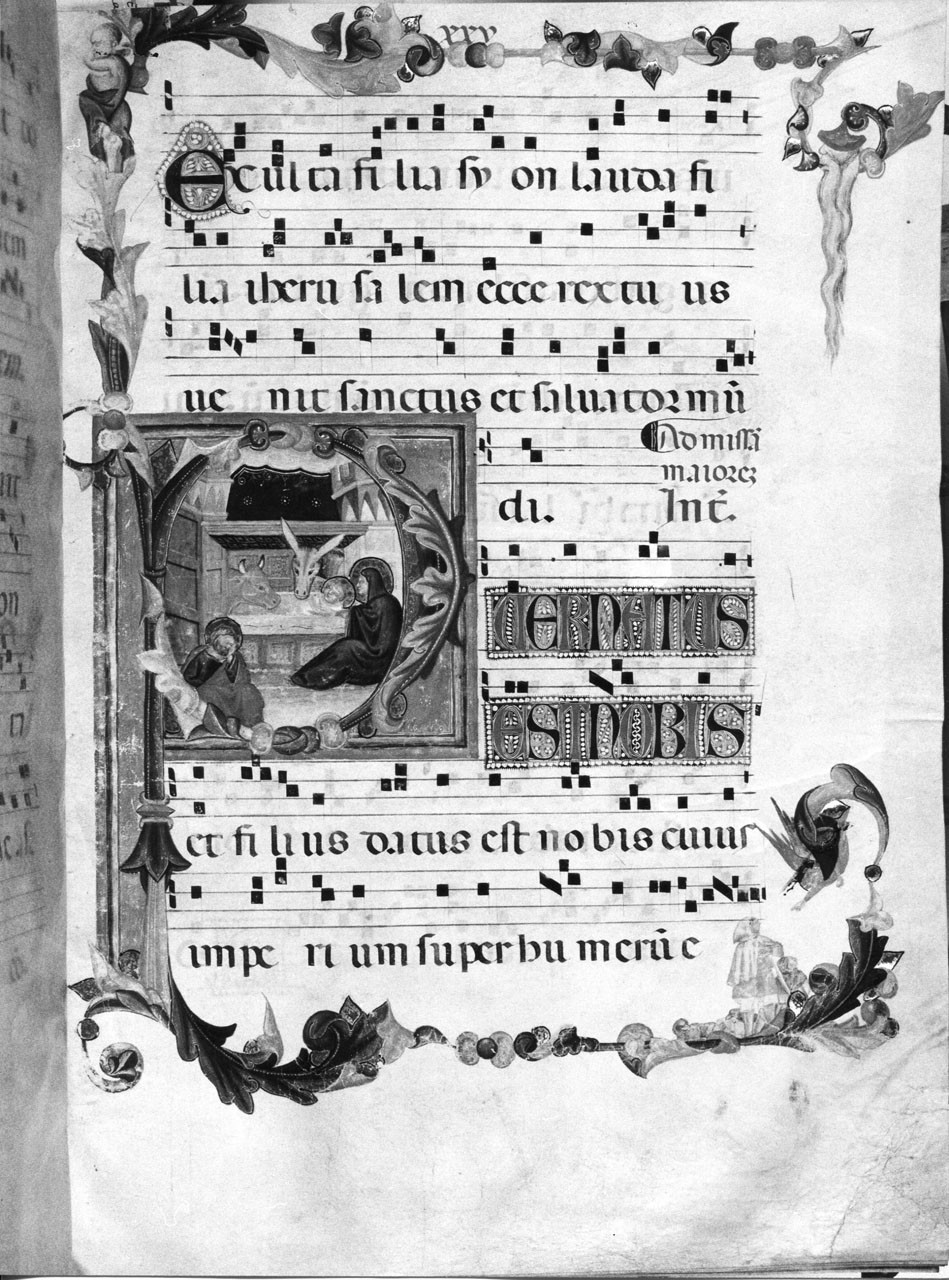 xxx
Exulta fi lia sy on lauda fi
lia iheru sa lem ecce rex tu us
ue nit sanctus et saluator mū
Ad missā
maiorē
di. Int̄.
P
UERNATUS
ESTNOBIS
et fi li us datus est nobis cuius
impe ri um super hu merū e